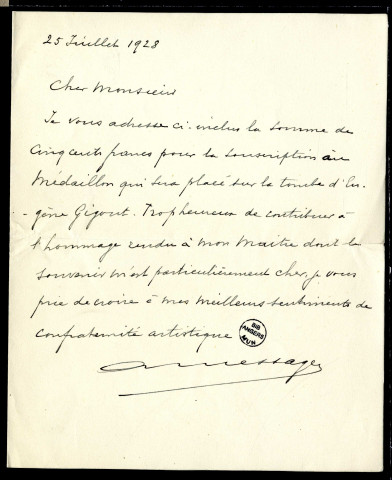 25 Juillet 1928
Cher Monsieur
Je vous adresse ci-inclus la somme de
Cinq cents francs pour la souscription au
Médaillon qui sera placé sur la tombe d'Eu-
-gène Gigout. Trop heureux de contribuer à
l'hommage rendu à mon Maitre dont le
souvenir m'est particulièrement cher, je vous
prie de croire à mes meilleurs sentiments de
confraternité artistique
BIB
ANGERS
MUN
A Messager